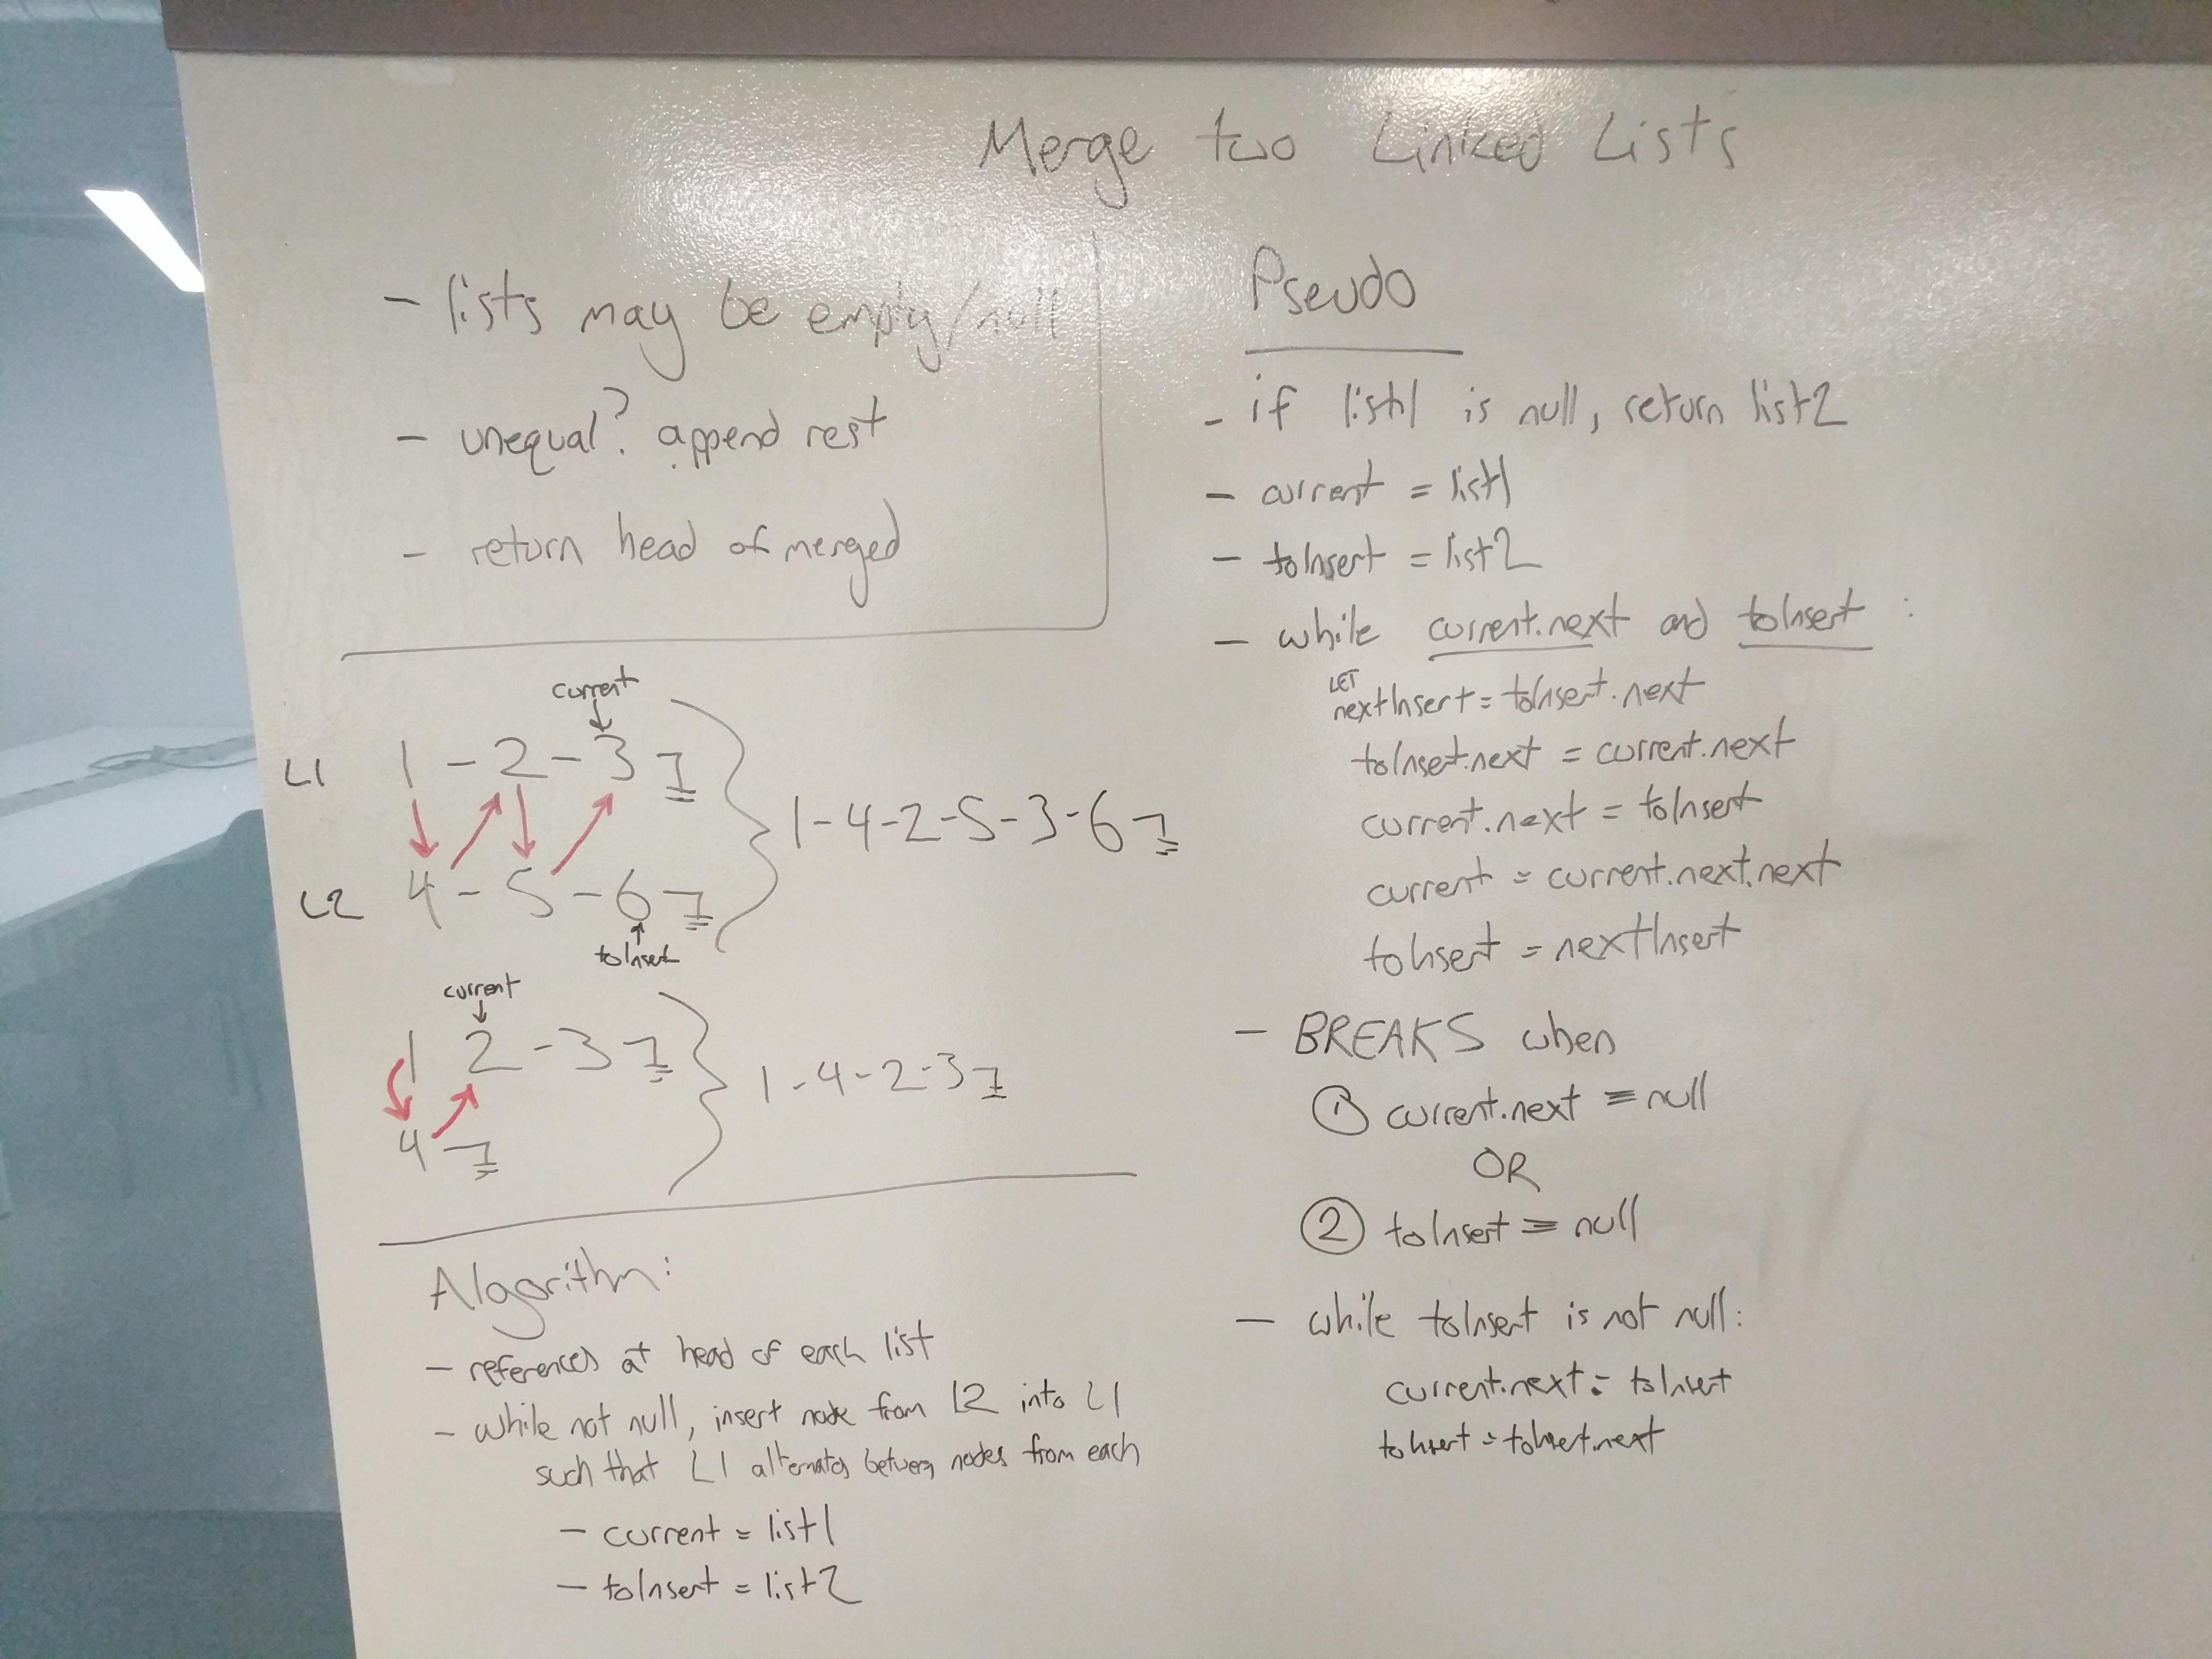 Merge two Linked Lists
- lists may be empty/null
- unequal? append rest
- return head of merged
current
L1 1 - 2 - 3
L2 4 - 5 - 6
toInsert
1-4-2-5-3-6
current
1 2 - 3
4 -
1-4-2-3
Algorithm:
- references at head of each list
- while not null, insert node from L2 into L1
such that L1 alternates between nodes from each
- current = list1
- toInsert = list2
Pseudo
- if list1 is null, return list2
- current = list1
- toInsert = list2
- while current.next and toInsert :
LET
nextInsert = toInsert.next
toInsert.next = current.next
current.next = toInsert
current = current.next.next
toInsert = nextInsert
- BREAKS when
① current.next = null
OR
② toInsert = null
- while toInsert is not null:
current.next = toInsert
toInsert = toInsert.next